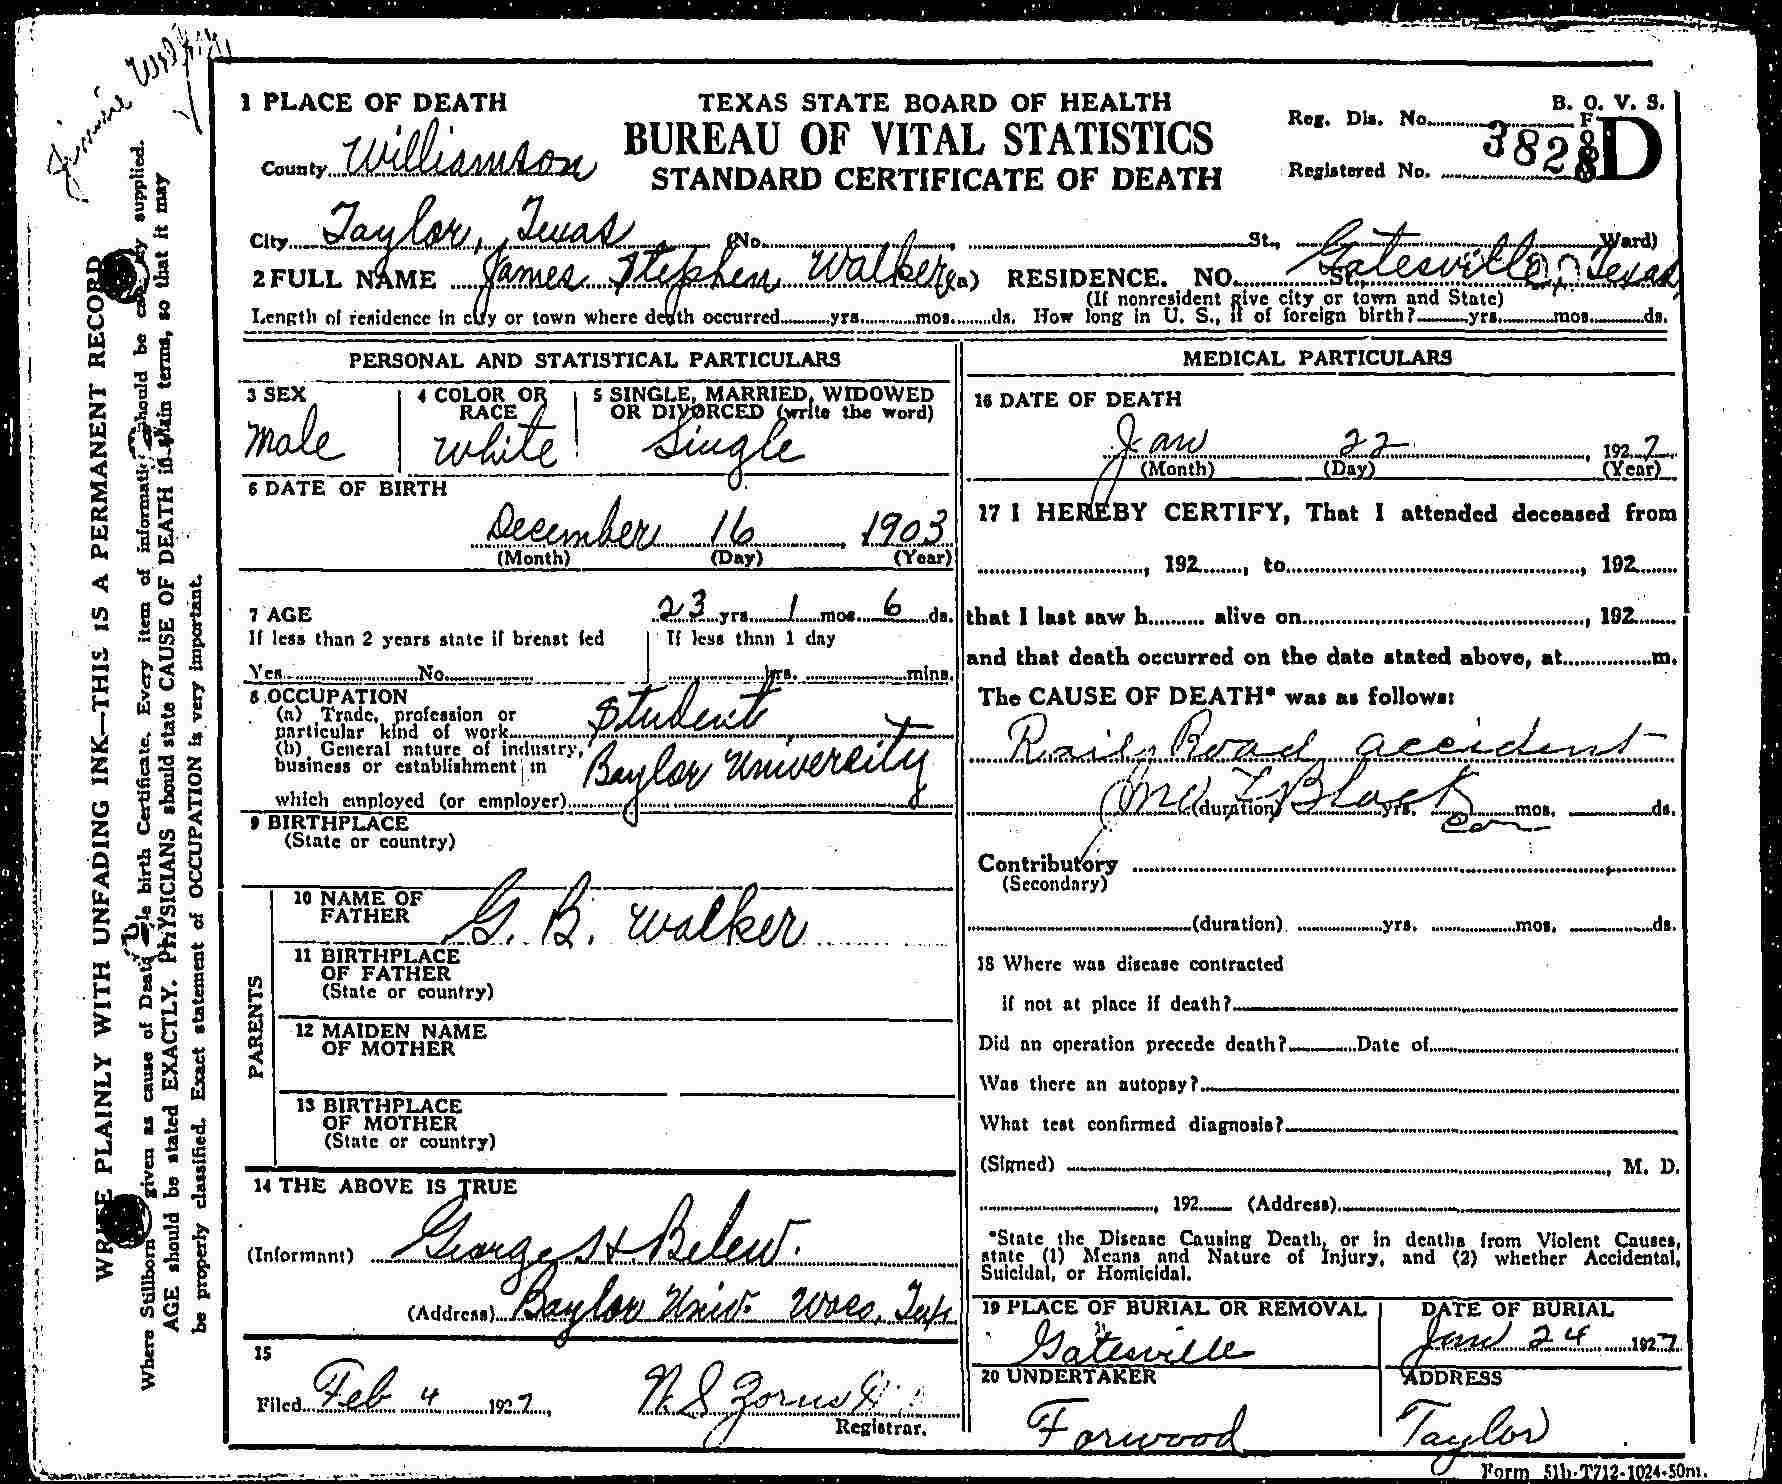 Jimmie
1 PLACE OF DEATH
TEXAS STATE BOARD OF HEALTH
B. O. V. S.
BUREAU OF VITAL STATISTICS
Reg. Dis. No.
County Williamson
STANDARD CERTIFICATE OF DEATH
Registered No. 3828 D
City Taylor, Texas (No. , St., Ward)
2 FULL NAME James Stephen Walker (a) RESIDENCE. NO. St., Gatesville, Texas
(If nonresident give city or town and State)
Length of residence in city or town where death occurred yrs. mos. ds. How long in U. S., if of foreign birth? yrs. mos. ds.
PERSONAL AND STATISTICAL PARTICULARS
3 SEX
Male
4 COLOR OR
RACE
White
5 SINGLE, MARRIED, WIDOWED
OR DIVORCED (write the word)
Single
6 DATE OF BIRTH
December 16, 1903
(Month) (Day) (Year)
7 AGE 23 yrs. 1 mos. 6 ds.
If less than 2 years state if breast fed
Yes No
If less than 1 day
hrs. mins.
8 OCCUPATION
(a) Trade, profession or
particular kind of work Student
(b) General nature of industry,
business or establishment in Baylor University
which employed (or employer)
9 BIRTHPLACE
(State or country)
PARENTS
10 NAME OF
FATHER G. B. Walker
11 BIRTHPLACE
OF FATHER
(State or country)
12 MAIDEN NAME
OF MOTHER
13 BIRTHPLACE
OF MOTHER
(State or country)
14 THE ABOVE IS TRUE
(Informant) George St Belew.
(Address) Baylor Univ. Waco, Tex
15
Filed Feb 4 1927,
Registrar.
MEDICAL PARTICULARS
16 DATE OF DEATH
Jan 22, 1927
(Month) (Day) (Year)
17 I HEREBY CERTIFY, That I attended deceased from
, 192 , to , 192
that I last saw h alive on , 192
and that death occurred on the date stated above, at m.
The CAUSE OF DEATH* was as follows:
Rail Road accident
Jno F Black
(duration) yrs. mos. ds.
Cor
Contributory
(Secondary)
(duration) yrs. mos. ds.
18 Where was disease contracted
if not at place if death?
Did an operation precede death? Date of
Was there an autopsy?
What test confirmed diagnosis?
(Signed) , M. D.
, 192 (Address)
*State the Disease Causing Death, or in deaths from Violent Causes,
state (1) Means and Nature of Injury, and (2) whether Accidental,
Suicidal, or Homicidal.
19 PLACE OF BURIAL OR REMOVAL
Gatesville
DATE OF BURIAL
Jan 24 1927
20 UNDERTAKER
Forwood
ADDRESS
Taylor
Form 51b-T712-1024-50m.
WRITE PLAINLY WITH UNFADING INK—THIS IS A PERMANENT RECORD
Where Stillborn given as cause of Death birth Certificate. Every item of information should be supplied.
AGE should be stated EXACTLY. PHYSICIANS should state CAUSE OF DEATH in plain terms, so that it may
be properly classified. Exact statement of OCCUPATION is very important.